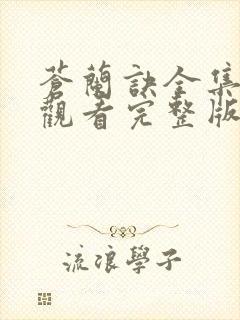 蒼蘭訣全集
觀看完整版
流浪學子